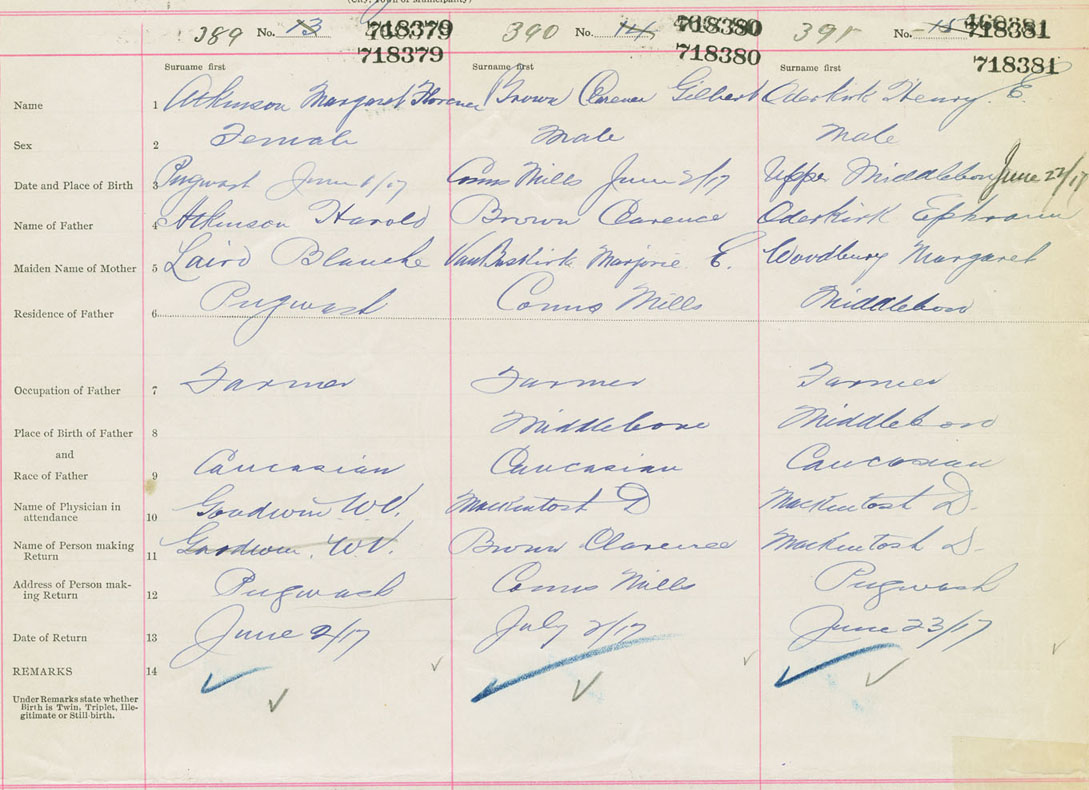 (City, Town or Municipality)
389 No. 13 718379 390 No. 14 718380 391 No. 15 718381
718379 718380 718381
Surname first Surname first Surname first
Name 1 Atkinson Margaret Florence Brown Clarence Gilbert Oderkirk Henry. E.
Sex 2 Female Male Male
Date and Place of Birth 3 Pugwash June 1/17 Conns Mills June 2/17 Upper Middleboro June 22/17
Name of Father 4 Atkinson Harold Brown Clarence Oderkirk Ephraim
Maiden Name of Mother 5 Laird Blanche VanBuskirk Marjorie E. Woodbury Margaret
Residence of Father 6 Pugwash Conns Mills Middleboro
Occupation of Father 7 Farmer Farmer Farmer
Place of Birth of Father 8 Middleboro Middleboro
and
Race of Father 9 Caucasian Caucasian Caucasian
Name of Physician in
attendance 10 Goodwin W.V. Mackintosh D Mackintosh D.
Name of Person making
Return 11 Goodwin. W.V. Brown Clarence Mackintosh D.
Address of Person mak-
ing Return 12 Pugwash Conns Mills Pugwash
Date of Return 13 June 2/17 July 2/17 June 23/17
REMARKS 14
Under Remarks state whether
Birth is Twin, Triplet, Ille-
gitimate or Still-birth.